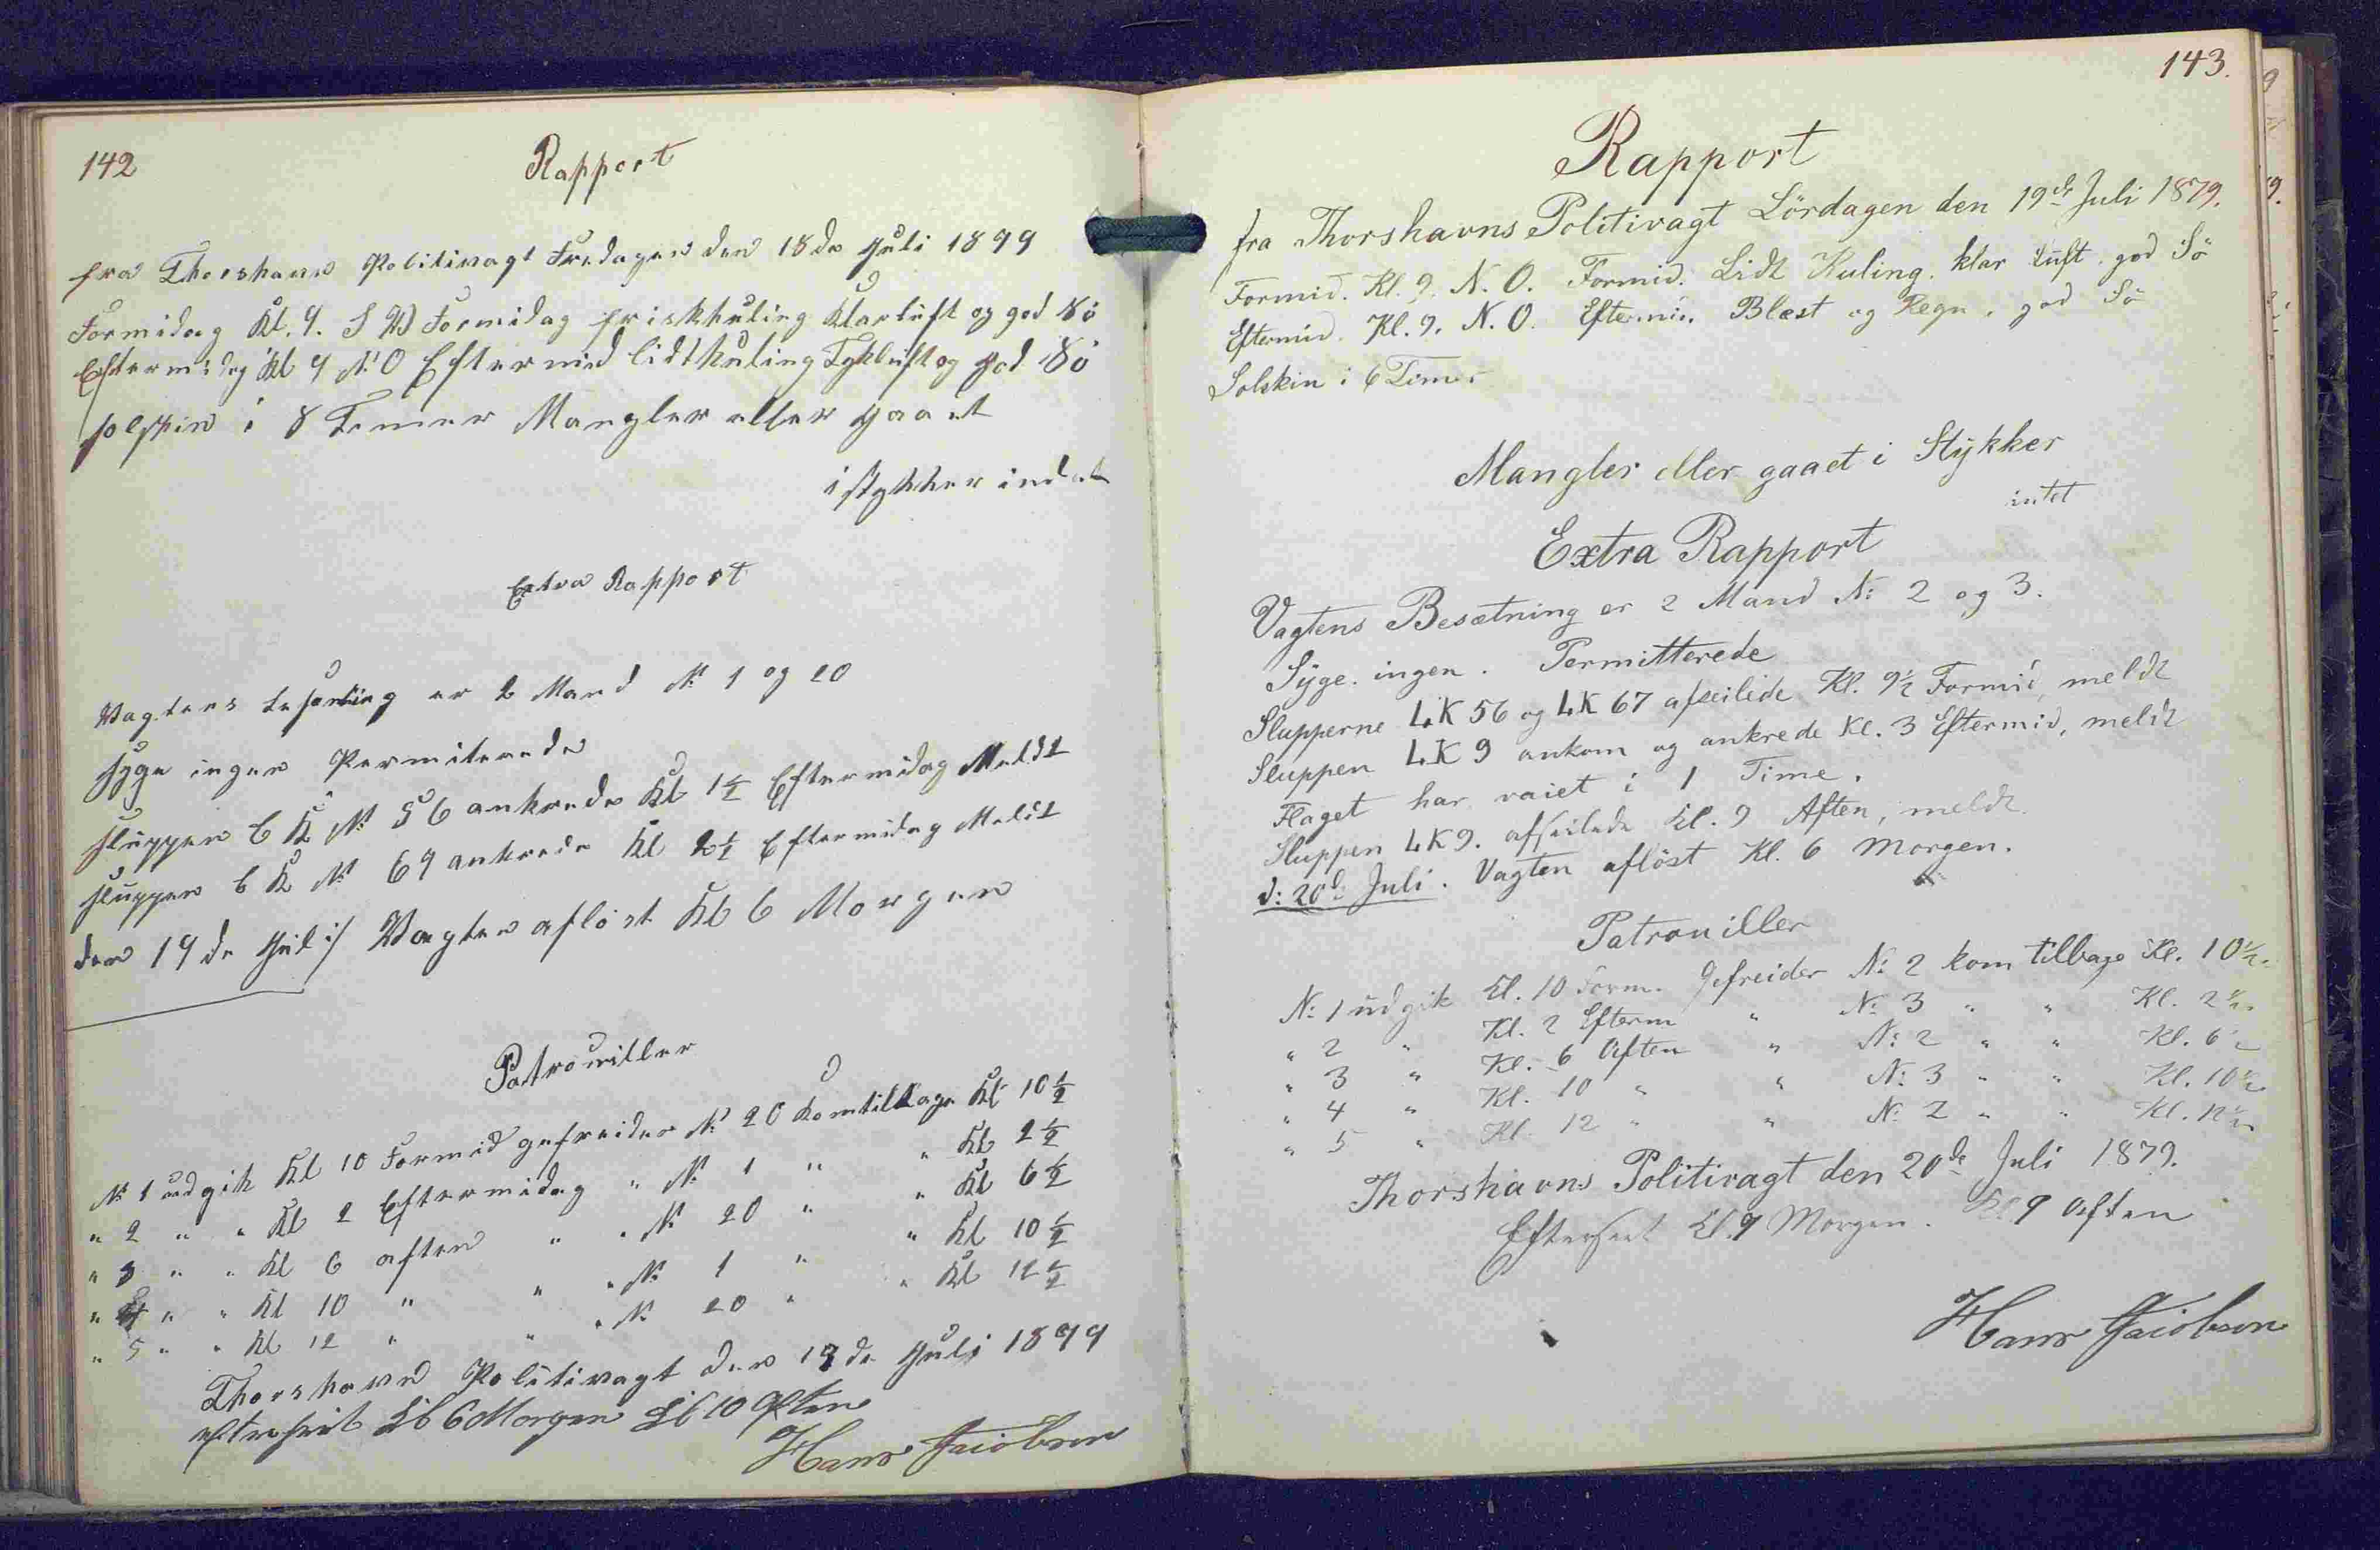 142
Rapport
fra Thorshavns Politivagt Fredagen den 18de Juli 1879
Formidag Kl. 9. S W Formidag friskkuling Klarluft og god Sö
Eftermidag Kl 9 N O Eftermid lidtkuling Tykluft og god Sö
solskin i 8 Timer Mangler eller gaaet
i stykker indet
Extra Rapport
Vagtens besætning er 2 Mand No 1 og 20
syge ingen Permiterede
sluppen L K No 56 ankrede Kl 1½ Eftermidag Meldt
sluppen L K No 67 ankrede Kl 2½ Eftermidag Meldt
den 19de Juli Vagten aflöst Kl 6 Morgen
Patrouiller
No 1 udgik Kl 10 Formid gefreider No 20 kom tilbage Kl 10½
" 2 " " Kl 2 Eftermidag " No 1 " " Kl 2½
" 3 " " Kl 6 aften " " No 20 " " Kl 6½
" 4 " " Kl 10 " " " No 1 " " Kl 10½
" 5 " " Kl 12 " " " No 20 " " Kl 12½
Thorshavns Politivagt den 19de Juli 1879
efterseet Kl 6 Morgen Kl 10 Aften
Hans Jacobsen
143.
Rapport
fra Thorshavns Politivagt Lördagen den 19de Juli 1879.
Formid. Kl. 9. N. O. Formid. Lidt Kuling. klar Luft. god Sö
Eftermid. Kl. 9. N. O. Eftermid. Blæst og Regn. god Sö
Solskin i 6 Timer
Mangler eller gaaet i Stykker
intet
Extra Rapport
Vagtens Besætning er 2 Mand No 2 og 3.
Syge. ingen. Permitterede
Slupperne LK 56 og LK 67 afseilede Kl. 9½ Formid, meldt
Sluppen LK 9 ankom og ankrede Kl. 3 Eftermid, meldt
Flaget har vaiet i 1 Time.
Sluppen LK 9. afseilede Kl. 9 Aften, meldt
d: 20de Juli. Vagten aflöst Kl. 6 Morgen.
Patrouiller
No 1 udgik Kl. 10 Form. Gefreider No 2 kom tilbage Kl. 10½.
" 2 " Kl. 2 Efterm " No 3 " " Kl. 2½.
" 3 " Kl. 6 Aften " No 2 " " Kl. 6½
" 4 " Kl. 10 " " No 3 " " Kl. 10½
" 5 " Kl. 12 " " No 2 " " Kl. 12½
Thorshavns Politivagt den 20de Juli 1879.
Efterseet Kl. 9 Morgen. Kl 9 Aften
Hans Jacobsen